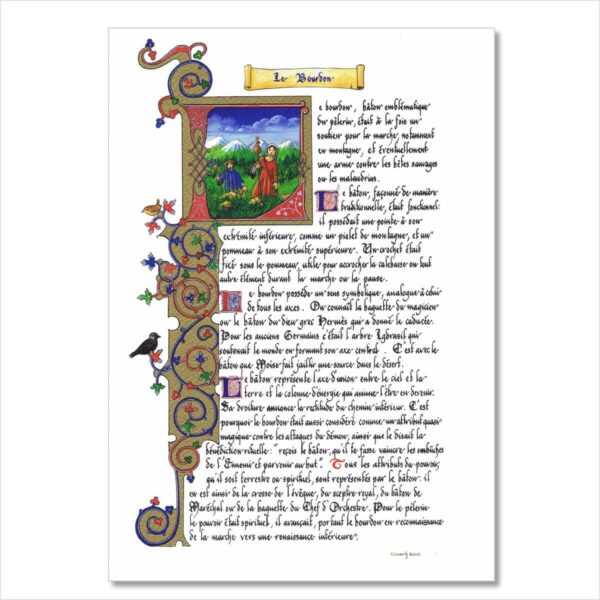 Le Bourdon
Le bourdon, bâton emblématique
du pèlerin, était à la fois un
soutien pour la marche, notamment
en montagne, et éventuellement
une arme contre les bêtes sauvages
ou les malandrins.
Le bâton, façonné de manière
traditionnelle, était fonctionnel:
il possédait une pointe à son
extrémité inférieure, comme un piolet de montagne, et un
pommeau à son extrémité supérieure. Un crochet était
fixé sous le pommeau, utile pour accrocher la calebasse ou tout
autre élément durant la marche ou la pause.
Le bourdon possède un sens symbolique, analogue à celui
de tous les axes. On connaît la baguette du magicien
ou le bâton du dieu grec Hermès qui a donné le caducée.
Pour les anciens Germains c'était l'arbre Igdrasil qui
soutenait le monde en formant son axe central. C'est avec le
bâton que Moïse fait jaillir une source dans le désert.
Le bâton représente l'axe d'union entre le ciel et la
terre et la colonne d'énergie qui anime l'être en devenir.
Sa droiture annonce la rectitude du chemin intérieur. C'est
pourquoi le bourdon était aussi considéré comme un attribut quasi-
magique contre les attaques du démon, ainsi que le disait la
bénédiction rituelle: "reçois le bâton, qu'il te fasse vaincre les embûches
de l'Ennemi et parvenir au but". Tous les attributs du pouvoir,
qu'il soit terrestre ou spirituel, sont représentés par le bâton: il
en est ainsi de la crosse de l'évêque, du sceptre royal, du bâton de
Maréchal ou de la baguette du Chef d'Orchestre. Pour le pèlerin
le pouvoir était spirituel, il avançait, portant le bourdon en reconnaissance
de la marche vers une renaissance intérieure.